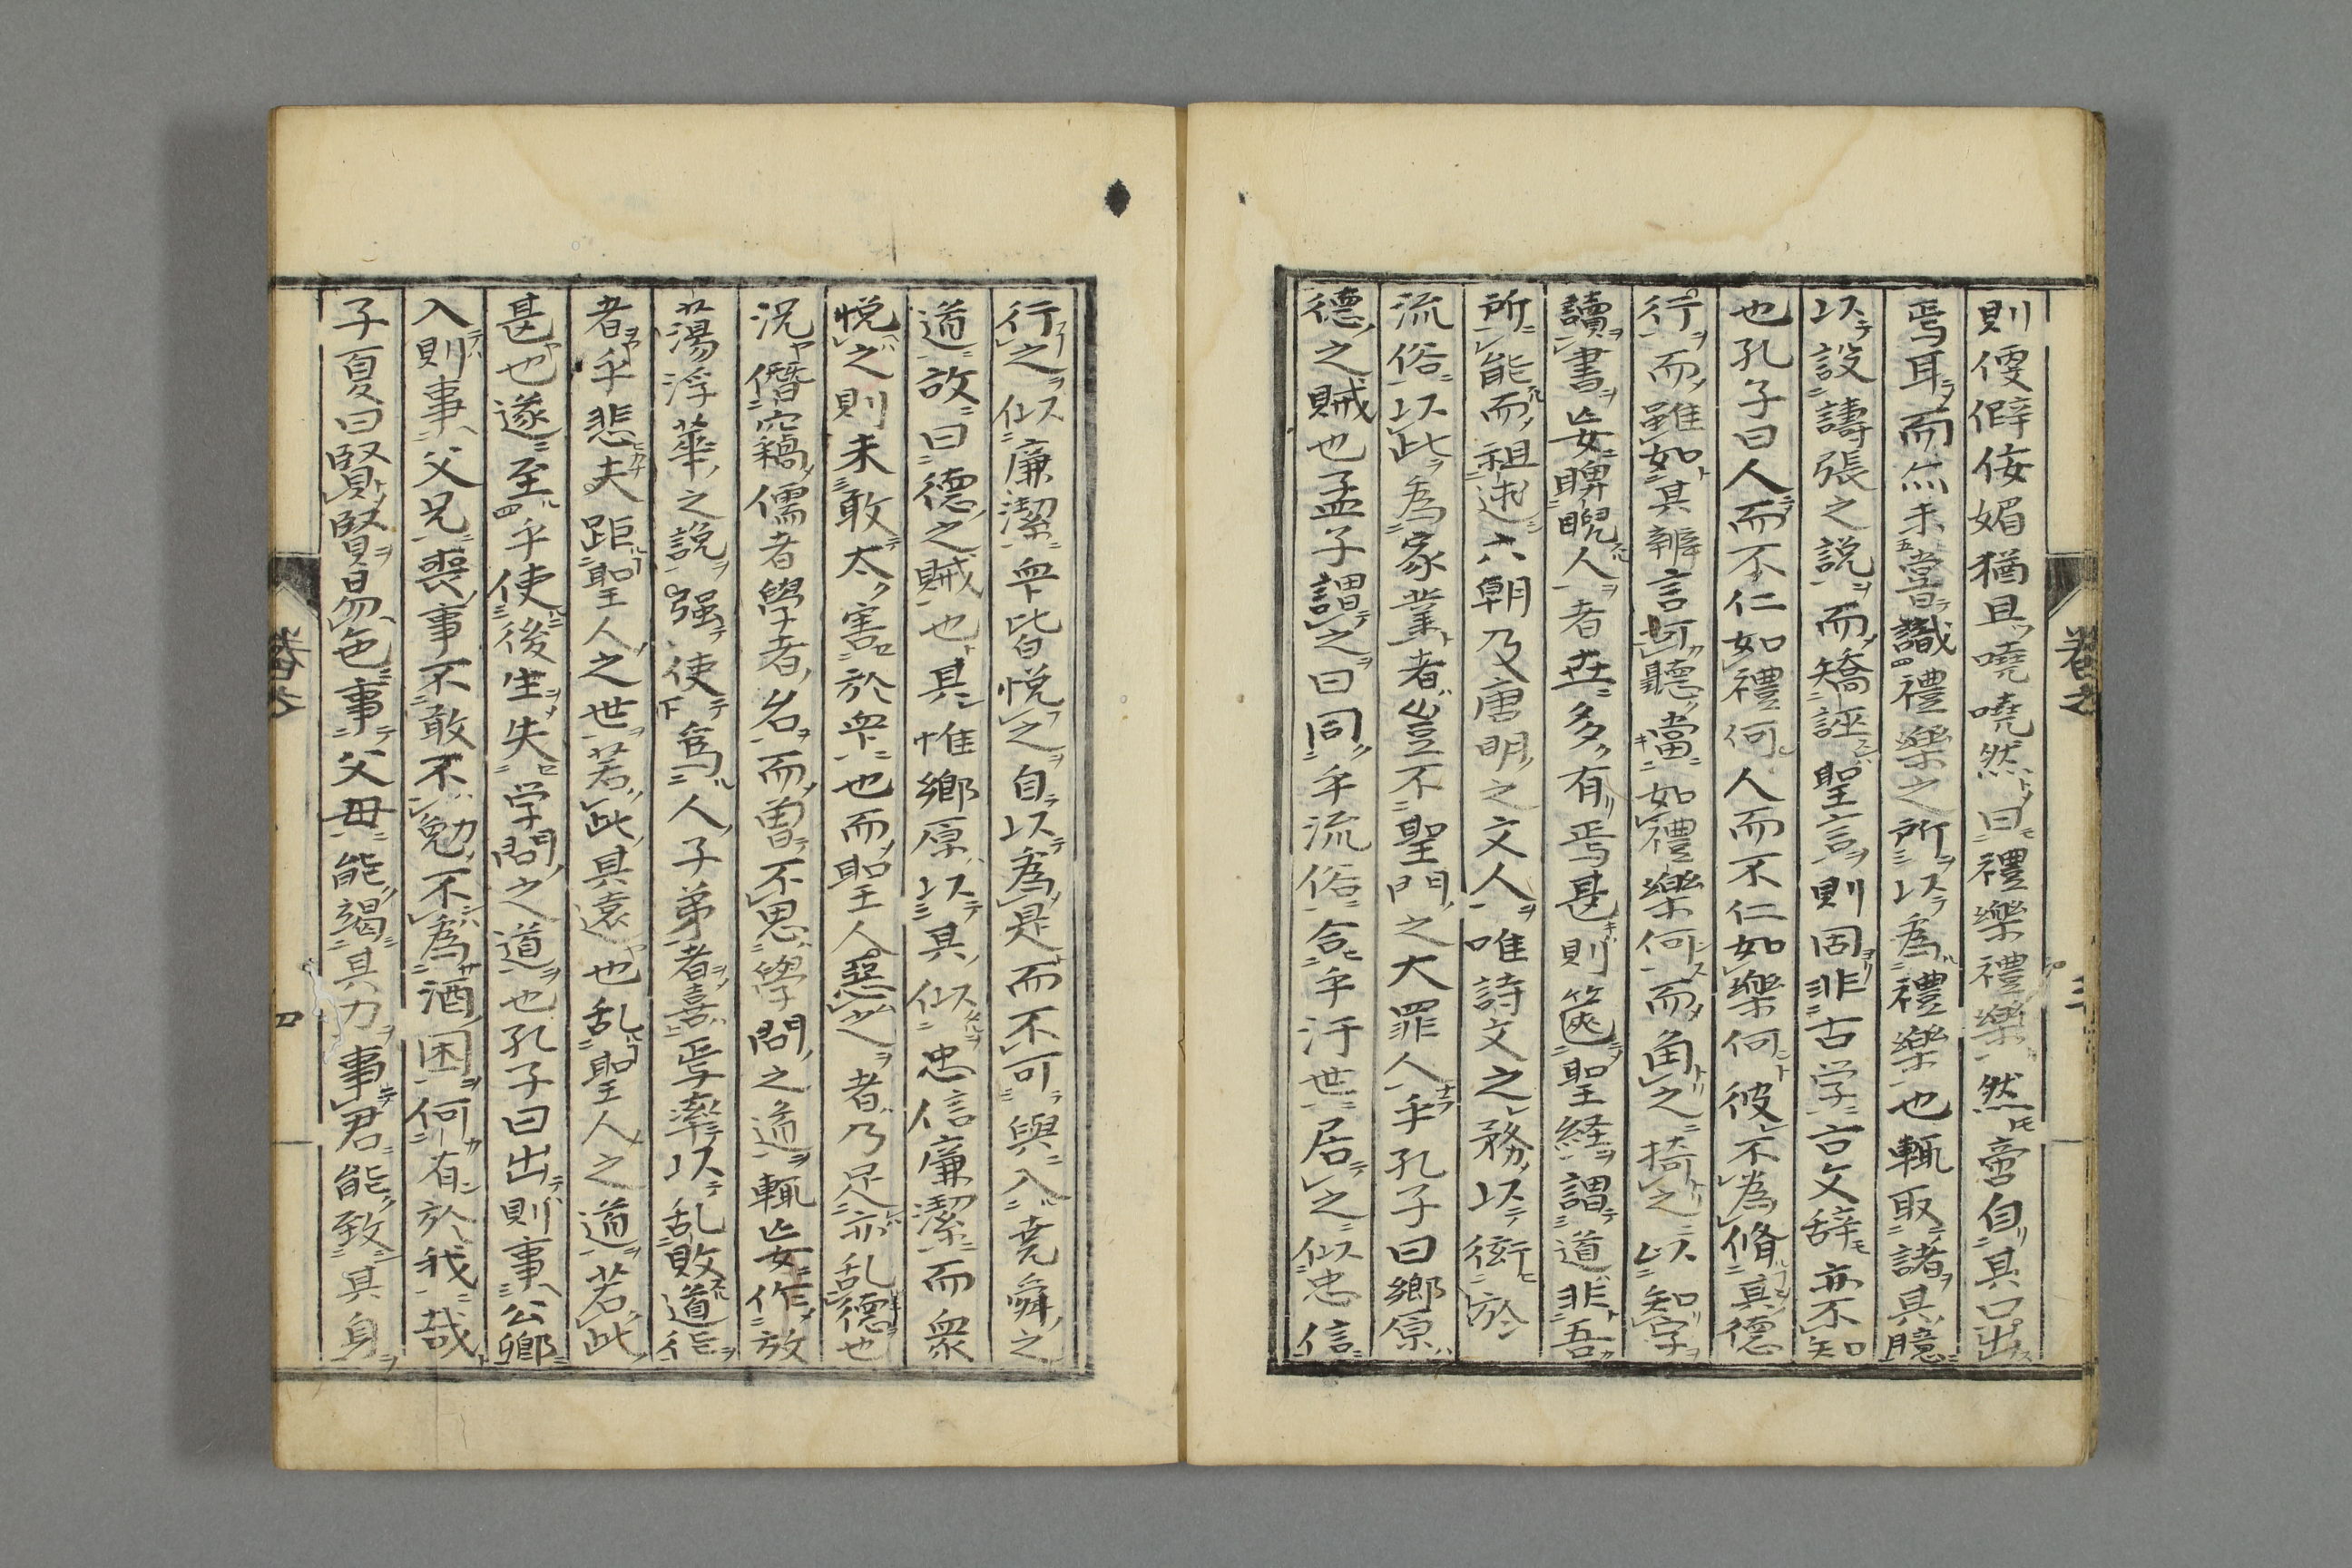 則便僻侫媚猶且嘵嘵然曰禮樂禮樂然啻自其口出
焉耳而然未嘗識禮樂之所以為禮樂也輒取諸其臆
以設譸張之説而矯誣聖言則固非古学古文辞亦不知
也孔子曰人而不仁如禮何人而不仁如樂何彼不為脩其德
行而雖如其辨言可聽當如禮樂何而角之掎之以知字
讀書妄睥睨人者英多有焉甚則篋聖経謂道非吾
所能而祖述六朝及唐明之文人唯詩文之務以衒於
流俗以此為家業者豈不聖門之大罪人乎孔子曰鄉原
德之賊也孟子謂之曰同乎流俗合乎汙世居之似忠信
行之似廉潔衆皆悦之自以為是而不可與入堯舜之
道故曰德之賊也其惟鄉原以其似忠信廉潔而衆
悦之則未敢太害於衆也而聖人惡之者乃足亦乱德也
況僭竊儒者學者名而曽不思學問之道輒妄作放
蕩浮華之説强使為人子弟者喜焉率以乱敗道徳
者乎悲夫距聖人之世若此其遠也乱聖人之道若此
甚也遂至乎使後生失学問之道也孔子曰出則事公卿
入則事父兄喪事不敢不勉不為酒困何有於我哉
子夏曰賢賢易色事父母能竭其力事君能致其身